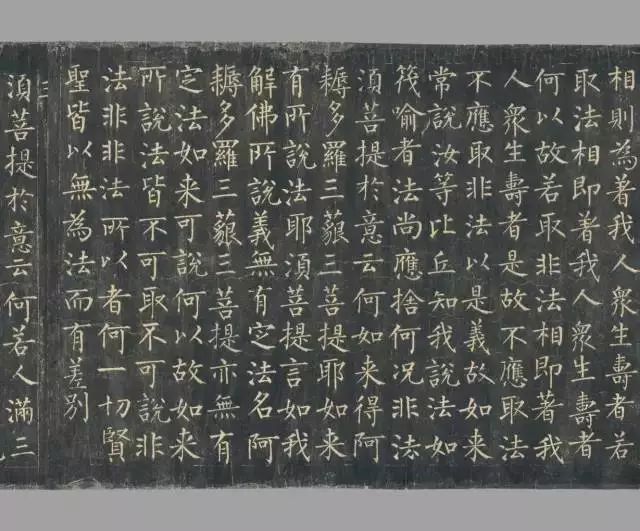 相則為著我人衆生壽者若
取法相即著我人衆生壽者
何以故若取非法相即著我
人衆生壽者是故不應取法
不應取非法以是義故如来
常說汝等比丘知我說法如
筏喻者法尚應捨何况非法
須菩提於意云何如来得阿
耨多羅三藐三菩提耶如来
有所說法耶須菩提言如我
解佛所說義無有定法名阿
耨多羅三藐三菩提亦無有
定法如来可說何以故如来
所說法皆不可取不可說非
法非非法所以者何一切賢
聖皆以無為法而有差別
三
須菩提於意云何若人滿三